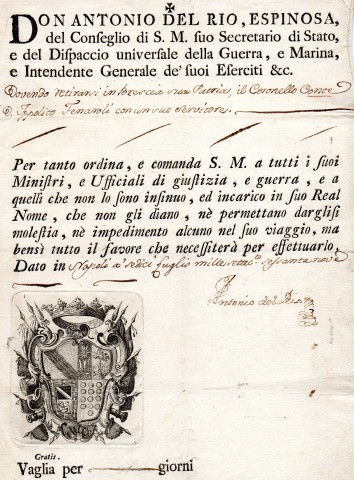 DON ANTONIO DEL RIO, ESPINOSA,
del Conseglio di S. M. suo Secretario di Stato,
e del Dispaccio universale della Guerra, e Marina,
e Intendente Generale de' suoi Eserciti &c.
Dovendo retirarsi in Brescia sua Patria, il Coronello Conte
D. Ippolito Fenaroli con un suo servitore.
Per tanto ordina, e comanda S. M. a tutti i suoi
Ministri, e Ufficiali di giustizia, e guerra, e a
quelli che non lo sono insinuo, ed incarico in suo Real
Nome, che non gli diano, nè permettano darglisi
molestia, nè impedimento alcuno nel suo viaggio, ma
bensì tutto il favore che necessiterà per effettuarlo,
Dato in Napoli a' sedici Luglio mille settec.º sessanta nove
Antonio del Rio
Gratis.
Vaglia per giorni